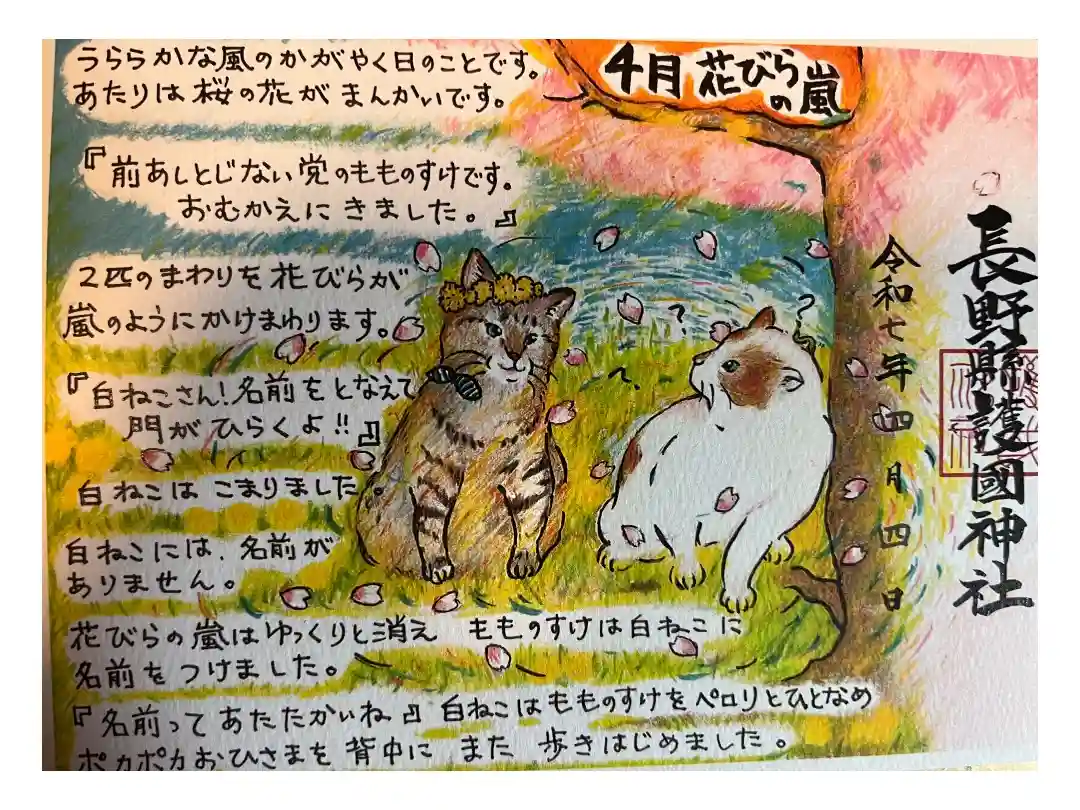 4月 花びら
の嵐
うららかな風のかがやく日のことです。
あたりは桜の花が まんかいです。
『前あしとじない党のもものすけです。
おむかえに きました。』
2匹のまわりを花びらが
嵐のようにかけまわります。
『白ねこさん!名前をとなえて
門がひらくよ!!』
白ねこは こまりました。
白ねこには、名前が
ありません。
花びらの嵐はゆっくりと消え もものすけは白ねこに
名前をつけました。
『名前って あたたかいね』 白ねこはもものすけをペロリとひとなめ
ポカポカおひさまを背中に また 歩きはじめました。
?
?
?
令和七年四月四日
長野縣護國神社